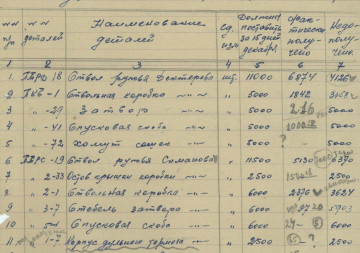 №№ п/п. №№ деталей Наименование деталей Ед. изм. Должны поставить за 15 дней декабря. Факти- чески получено Недо- получено.
1 2 3 4 5 6 7
1 ПТРД 18 Ствол ружья Дегтярева шт. 11000 6874
2 ПТД -1 Ствольная коробка -"- " 5000 1842
3 " -29 Затвор -"- " 5000 216
4 " -41 Спусковая скоба -"- " 5000
5 " -72 Хомут сошек -"- " 5000 -
6 ПТРС -19 Ствол ружья Симонова " 11500 5130
7 " 2-33 Остов крышки коробки -"- " 2500
8 " 2-1 Ствольная коробка -"- " 6000 2376 3624
9 " 3-7 Стебель затвора -"- " 6000 97 5903
10 " 5-4 Спусковая скоба -"- " 6000
11 " 1-7 Корпус дульного тормоза " 2500